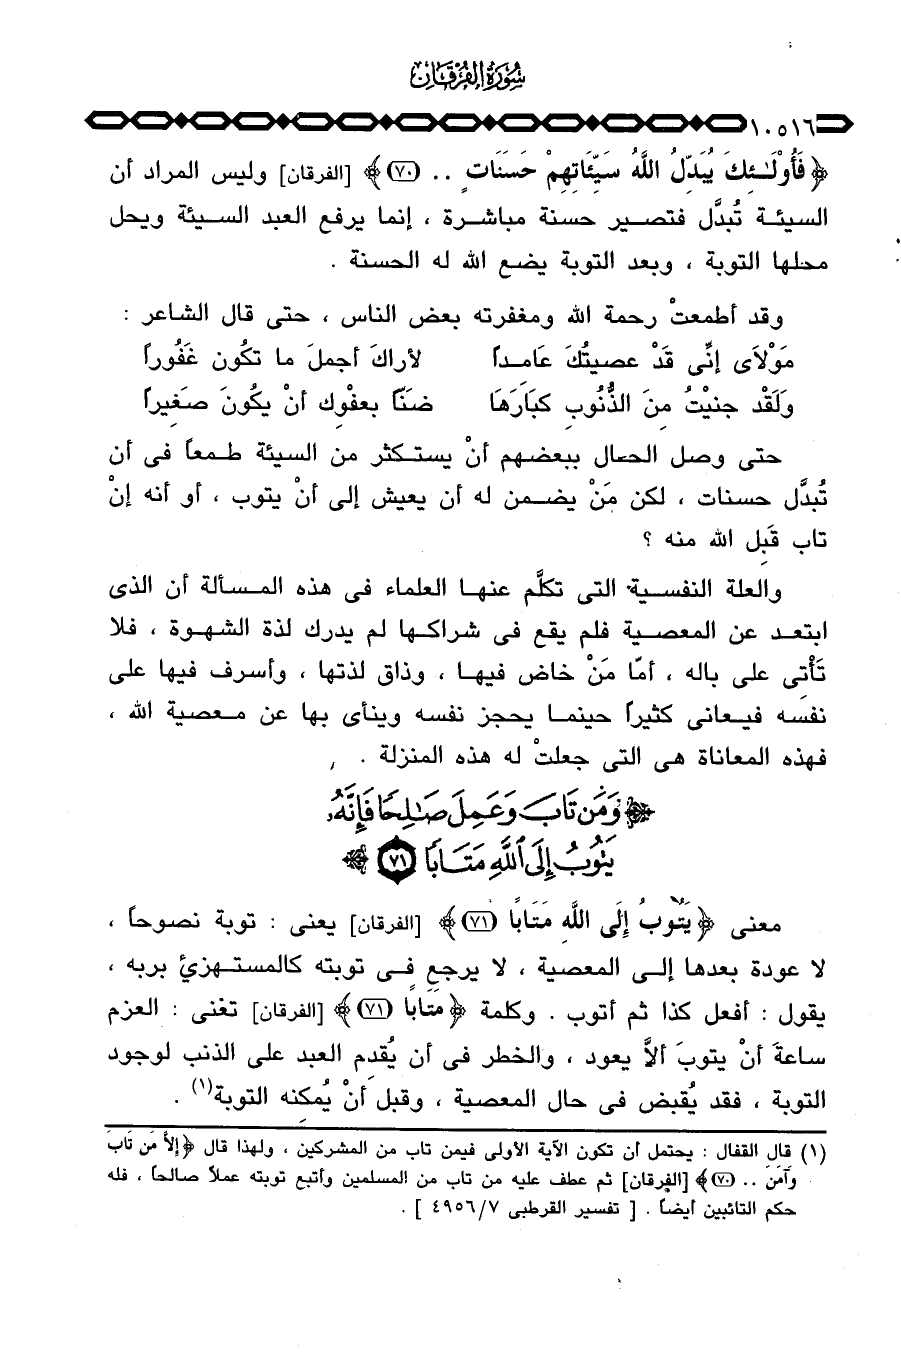 سُورَةُ الفُرْقَان
١٠٥١٦
﴿ فَأُوْلَـٰئِكَ يُبَدِّلُ اللَّهُ سَيِّئَاتِهِمْ حَسَنَاتٍ .. (٧٠) ﴾ [الفرقان] وليس المراد أن
السيئة تُبدَّل فتصير حسنة مباشرة ، إنما يرفع العبد السيئة ويحل
محلها التوبة ، وبعد التوبة يضع الله له الحسنة .
وقد أطمعتْ رحمة الله ومغفرته بعض الناس ، حتى قال الشاعر :
مَوْلاَى إنِّى قَدْ عصيتُكَ عَامداً لأراكَ أجملَ ما تكُون غَفُوراً
وَلَقَد جنيْتُ منَ الذُّنُوبِ كبَارَهَا ضنّاً بعفْوِك أنْ يكُونَ صَغيراً
حتى وصل الحال ببعضهم أنْ يستكثر من السيئة طمعاً فى أن
تُبدَّل حسنات ، لكن مَنْ يضمن له أن يعيش إلى أنْ يتوب ، أو أنه إنْ
تاب قَبِل الله منه ؟
والعلة النفسية التى تكلَّم عنها العلماء فى هذه المسألة أن الذى
ابتعد عن المعصية فلم يقع فى شراكها لم يدرك لذة الشهوة ، فلا
تَأْتى على باله ، أمّا مَنْ خاض فيها ، وذاق لذتها ، وأسرف فيها على
نفسه فيعانى كثيراً حينما يحجز نفسه وينأى بها عن معصية الله ،
فهذه المعاناة هى التى جعلتْ له هذه المنزلة .
﴿ وَمَن تَابَ وَعَمِلَ صَـٰلِحًا فَإِنَّهُۥ
يَتُوبُ إِلَى ٱللَّهِ مَتَابًا ٧١ ﴾
معنى ﴿ يَتُوبُ إِلَى اللَّهِ مَتَابًا (٧١) ﴾ [الفرقان] يعنى : توبة نصوحاً ،
لا عودة بعدها إلى المعصية ، لا يرجع فى توبته كالمستهزئ بربه ،
يقول : أفعل كذا ثم أتوب . وكلمة ﴿ مَتَابًا (٧١) ﴾ [الفرقان] تعْنى : العزم
ساعةَ أنْ يتوبَ ألاَّ يعود ، والخطر فى أن يُقدِم العبد على الذنب لوجود
التوبة ، فقد يُقبض فى حال المعصية ، وقبل أنْ يُمكنه التوبة(١) .
(١) قال القفال : يحتمل أن تكون الآية الأولى فيمن تاب من المشركين ، ولهذا قال ﴿ إِلاَّ مَن تَابَ
وَآمَنَ .. (٧٠) ﴾ [الفرقان] ثم عطف عليه من تاب من المسلمين وأتبع توبته عملاً صالحاً ، فله
حكم التائبين أيضاً . [ تفسير القرطبى ٤٩٥٦/٧ ] .